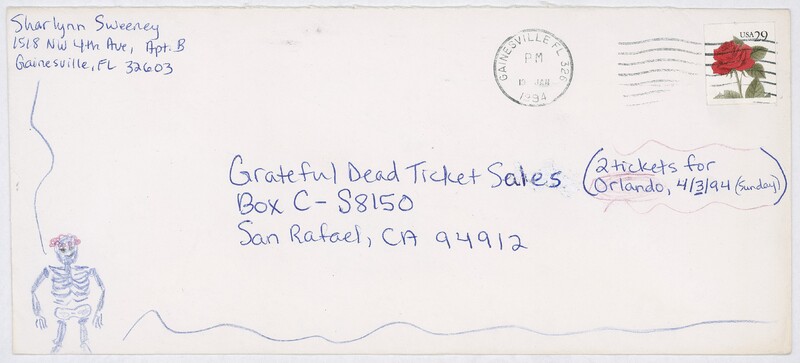 Sharlynn Sweeney
1518 NW 4th Ave, Apt. B
Gainesville, FL 32603
GAINESVILLE FL 326
PM
JAN
1994
USA 29
Grateful Dead Ticket Sales
Box C-S8150
San Rafael, CA 94912
(2 tickets for
Orlando, 4/3/94 (Sunday))